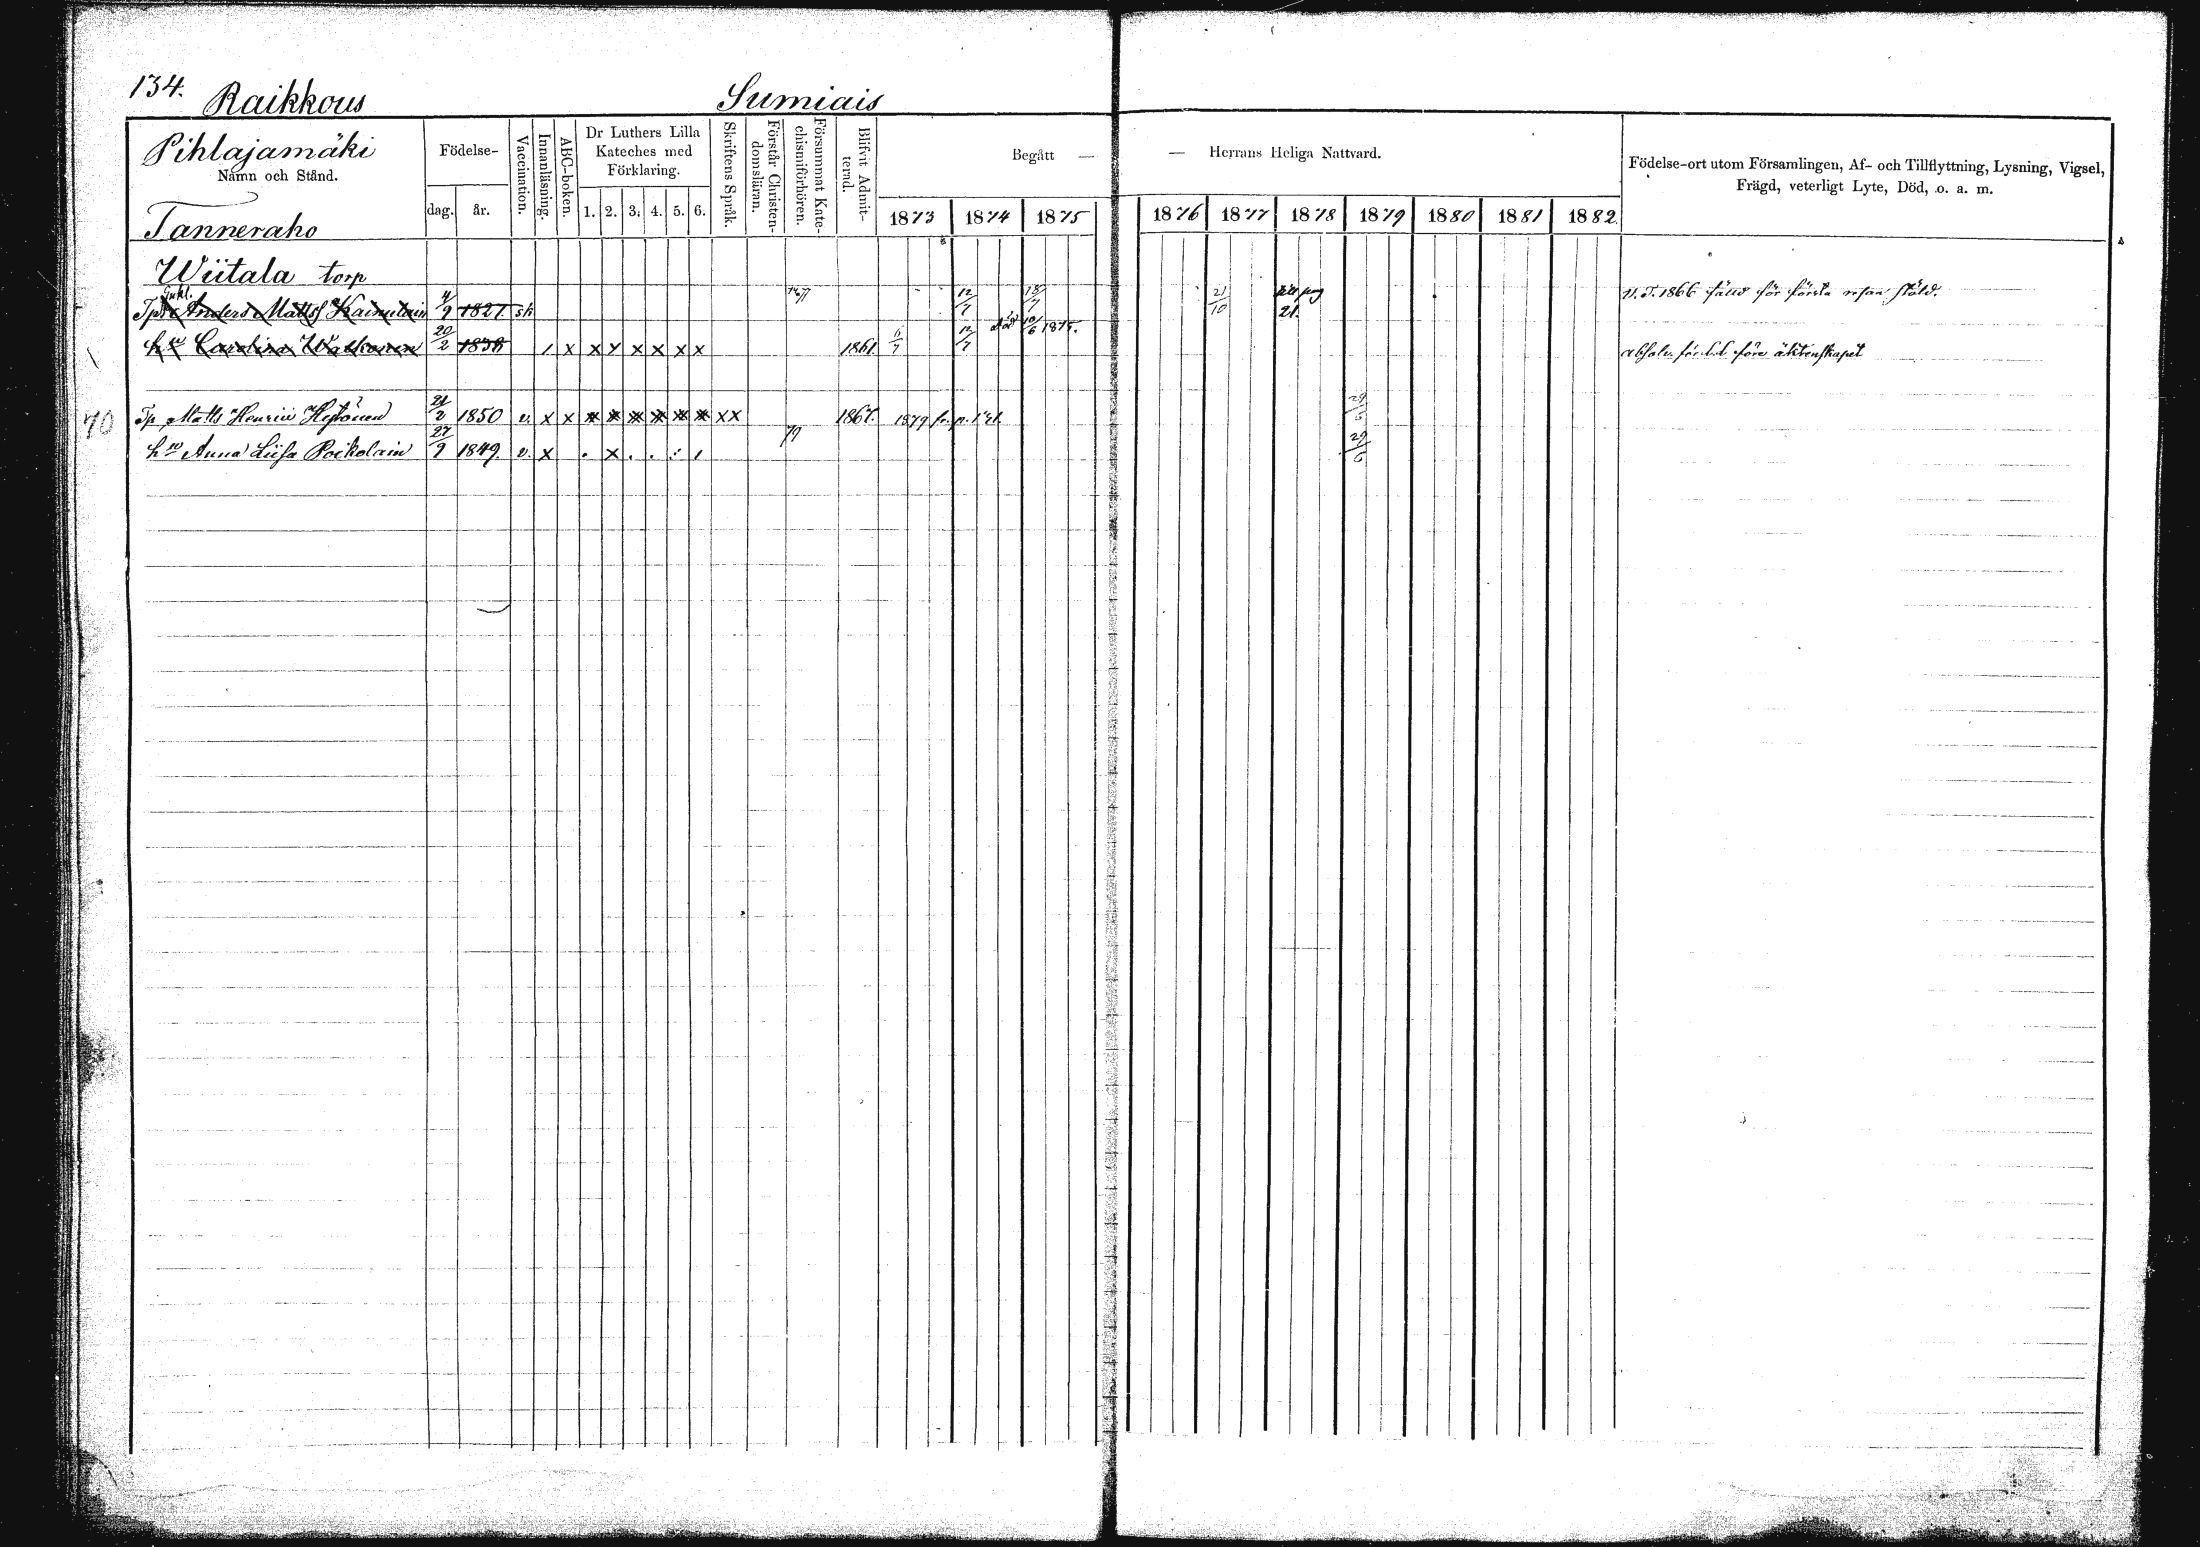 134. Raikkous Sumiais
Pihlajamäki
Namn och Stånd.
Tanneraho
Födelse-
dag. år.
Vaccination.
Innanläsning.
ABC-boken.
Dr Luthers Lilla
Kateches med
Förklaring.
1. 2. 3. 4. 5. 6.
Skriftens Språk.
Förstår Christen-
domsläran.
Försummat Kate-
chismiförhören.
Blifvit Admit-
terad.
Begått — — Herrans Heliga Nattvard.
1873 1874 1875 1876 1877 1878 1879 1880 1881 1882
Födelse-ort utom Församlingen, Af- och Tillflyttning, Lysning, Vigsel,
Frägd, veterligt Lyte, Död, o. a. m.
Wiitala torp
Enkl.
Anders Matts 4/9 1827 sk 12/7 18/7 21/10 21. 1866 för första resan stöld.
hu Carolina 20/2 1838 / x x x x x x x 1861. 6/7 12/7 död 10/6 1875. före äktenskapet
70 Tp Matts Henric 21/2 1850 v. x x x x x x x x x x 1867. 1879 fr. p.
hu Anna Liisa Poikolain 27/9 1849. v. x . x . . : / 79 29/6